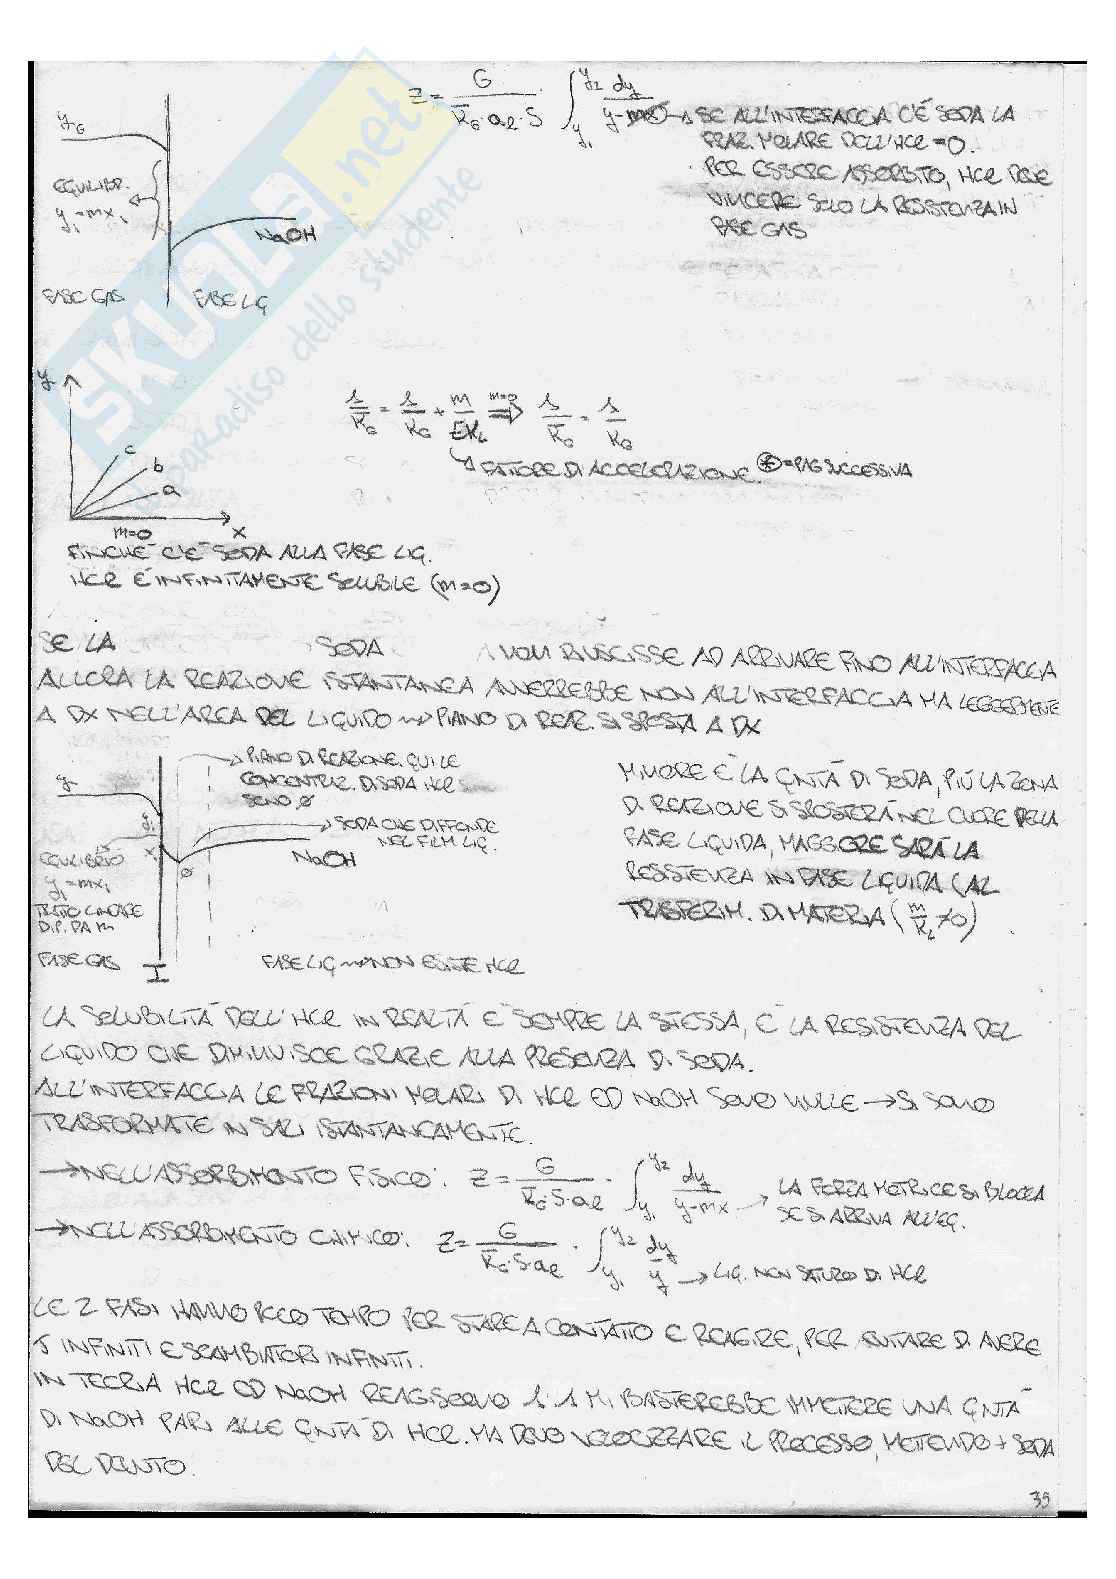 Z = G / (K̄G·ae·S) · ∫y1^y2 dy / (y-mx) → SE ALL'INTERFACCIA C'È SODA LA
FRAZ. MOLARE DELL'HCl = 0.
PER ESSERE ASSORBITO, HCl DEVE
VINCERE SOLO LA RESISTENZA IN
FASE GAS
yG
EQUILIBR.
yi = mxi
NaOH
FASE GAS
FASE LIQ
SKUOLA.net
il paradiso dello studente
y
c
b
a
m=0
x
1/K̄G = 1/KG + m/EKL m=0 ⇒ 1/K̄G = 1/KG
→ FATTORE DI ACCELERAZIONE. * = PAG SUCCESSIVA
FINCHÈ C'È SODA ALLA FASE LIQ.
HCl È INFINITAMENTE SOLUBILE (m=0)
SE LA SODA NON RIUSCISSE AD ARRIVARE FINO ALL'INTERFACCIA
ALLORA LA REAZIONE ISTANTANEA AVVERREBBE NON ALL'INTERFACCIA MA LEGGERMENTE
A DX NELL'AREA DEL LIQUIDO → PIANO DI REAZ. SI SPOSTA A DX
→ PIANO DI REAZIONE. QUI LE
CONCENTRAZ. DI SODA HCl
SONO Ø
y
yi
xi
Ø
→ SODA CHE DIFFONDE
NEL FILM LIQ.
NaOH
EQUILIBRIO
yi = mxi
TRATTO LINEARE
DIP. DA m
FASE GAS
I
FASE LIQ → NON ESISTE HCl
MINORE È LA QNTÀ DI SODA, PIÙ LA ZONA
DI REAZIONE SI SPOSTERÀ NEL CUORE DELLA
FASE LIQUIDA, MAGGIORE SARÀ LA
RESISTENZA IN FASE LIQUIDA (AL
TRASFERIM. DI MATERIA (m/KL ≠ 0)
LA SOLUBILITÀ DELL'HCl IN REALTÀ È SEMPRE LA STESSA, È LA RESISTENZA DEL
LIQUIDO CHE DIMINUISCE GRAZIE ALLA PRESENZA DI SODA.
ALL'INTERFACCIA LE FRAZIONI MOLARI DI HCl ED NaOH SONO NULLE → SI SONO
TRASFORMATE IN SALI ISTANTANEAMENTE.
→ NELL'ASSORBIMENTO FISICO: Z = G / (K̄G·S·ae) · ∫y1^y2 dy / (y-mx) → LA FORZA MOTRICE SI BLOCCA
SE SI ARRIVA ALL'EQ.
→ NELL'ASSORBIMENTO CHIMICO: Z = G / (K̄G·S·ae) · ∫y1^y2 dy / y → LIQ. NON SATURO DI HCl
LE 2 FASI HANNO POCO TEMPO PER STARE A CONTATTO E REAGIRE, PER EVITARE DI AVERE
τ INFINITI E SCAMBIATORI INFINITI.
IN TEORIA HCl ED NaOH REAGISCONO 1:1 MI BASTEREBBE IMMETTERE UNA QNTÀ
DI NaOH PARI ALLE QNTÀ DI HCl. MA DEVO VELOCIZZARE IL PROCESSO, METTENDO + SODA
DEL DOVUTO.
39